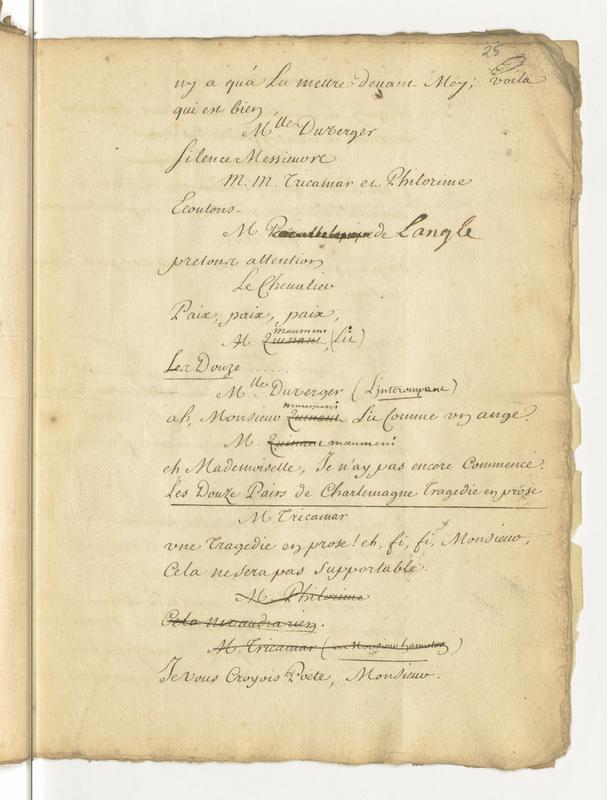 25
n'y a qu'à La mettre devant Moy; voila
qui est bien
Mlle Duverger
Silence Messieurs
M. M. Tricamar et Philorime
Ecoutons.
M de Langle
pretons attention
Le Chevalier
Paix, paix, paix,
maumeni
M. Quinaut (Lit)
Les Douze .......
Mlle Duverger (L'interompant)
maumeni
ah, Monsieur Quinaut Lit Comme un ange.
M. Quinaut maumeni
eh Mademoiselle, Je n'ay pas encore Commencé.
Les Douze Pairs de Charlemagne Tragedie en prose
M Tricamar
une Tragedie en prose! eh, fi, fi, Monsieur,
Cela ne sera pas Supportable.
M. Philorime
Cela ne vaudra rien.
M. Tricamar (au Monsieur )
Je vous Croyois Poëte, Monsieur.